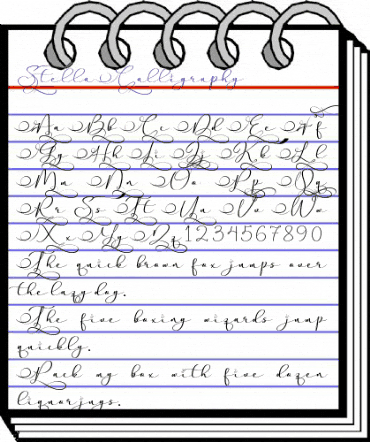 Stella Calligraphy
Aa Bb Cc Dd Ee Ff
Gg Hh Ii Jj Kk Ll
Mm Nn Oo Pp Qq
Rr Ss Tt Uu Vv Ww
Xx Yy Zz 1234567890
The quick brown fox jumps over
the lazy dog.
The five boxing wizards jump
quickly.
Pack my box with five dozen
liquor jugs.